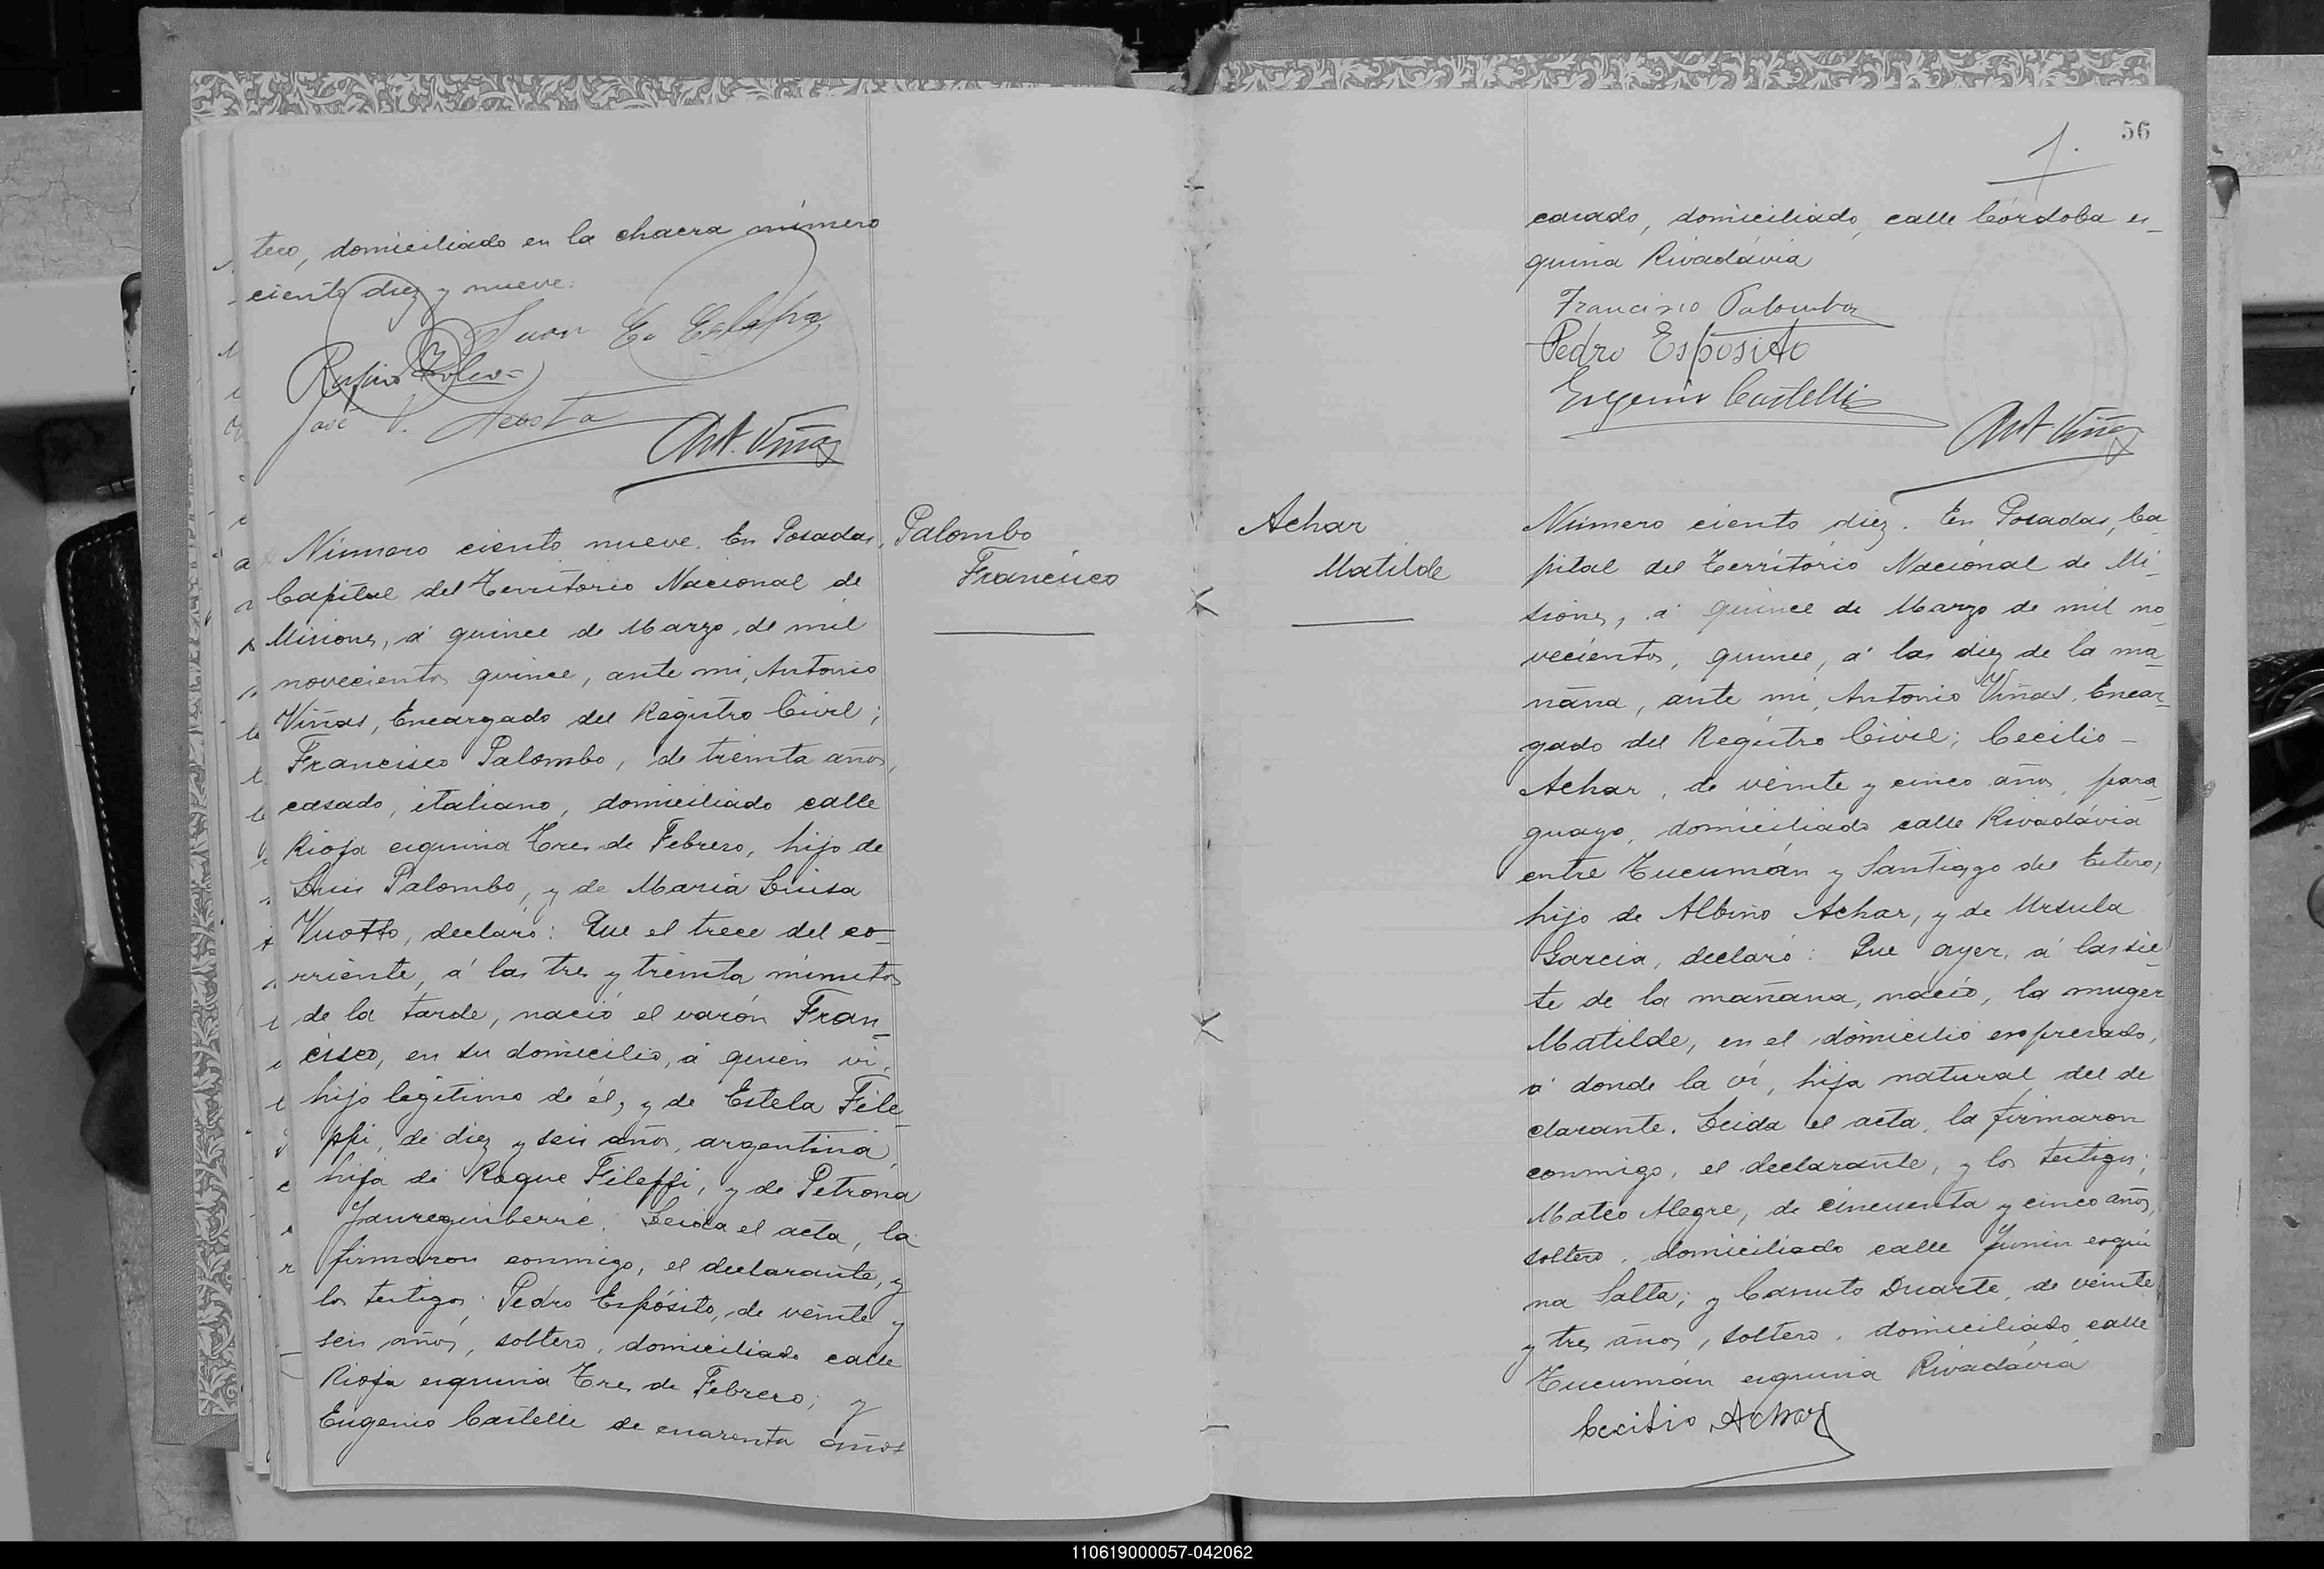 tero, domiciliado en la chacra número
ciento diez y nueve.
Juan E. Estapa
Rufino
José V. Acosta
Ant. Viñas
Número ciento nueve. En Posadas,
Capital del Territorio Nacional de
Misiones, á quince de Marzo, de mil
novecientos quince, ante mi, Antonio
Viñas, Encargado del Registro Civil;
Francisco Palombo, de treinta años,
casado, italiano, domiciliado calle
Rioja esquina Tres de Febrero, hijo de
Luis Palombo, y de Maria Luisa
Vuotto, declaró: Que el trece del co-
rriente, á las tres y treinta minutos
de la tarde, nació el varón Fran-
cisco, en su domicilio, á quien vi,
hijo legitimo de él, y de Estela File-
ppi, de diez y seis años, argentina,
hija de Roque Fileppi, y de Petrona
Jaureguiberrie. Leida el acta, la
firmaron conmigo, el declarante, y
los testigos; Pedro Espósito, de veinte y
seis años, soltero, domiciliado calle
Rioja esquina Tres de Febrero; y
Eugenio Castelli de cuarenta años
Palombo
Francisco
56
1.
casado, domiciliado, calle Córdoba es-
quina Rivadávia
Francisco Palombo
Pedro Esposito
Eugenio Castelli
Ant Viñas
Achar
Matilde
Número ciento diez. En Posadas, Ca-
pital del Territorio Nacional de Mi-
siones, á quince de Marzo de mil no-
vecientos, quince, á las diez de la ma-
ñana, ante mi, Antonio Viñas, Encar-
gado del Registro Civil; Cecilio -
Achar, de veinte y cinco años, para-
guayo, domiciliado calle Rivadávia
entre Tucumán y Santiago del Estero,
hijo de Albino Achar, y de Ursula
Garcia, declaró: Que ayer, á las sie-
te de la mañana, nació, la muger
Matilde, en el domicilio espresado,
á donde la vi, hija natural del de
clarante. Leida el acta, la firmaron
conmigo, el declarante, y los testigos;
Mateo Alegre, de cincuenta y cinco años,
soltero, domiciliado calle Junin esqui
na Salta; y Canuto Duarte, de veinte
y tres años, soltero, domiciliado, calle
Tucumán esquina Rivadávia
Cecilio Achar
110619000057-042062